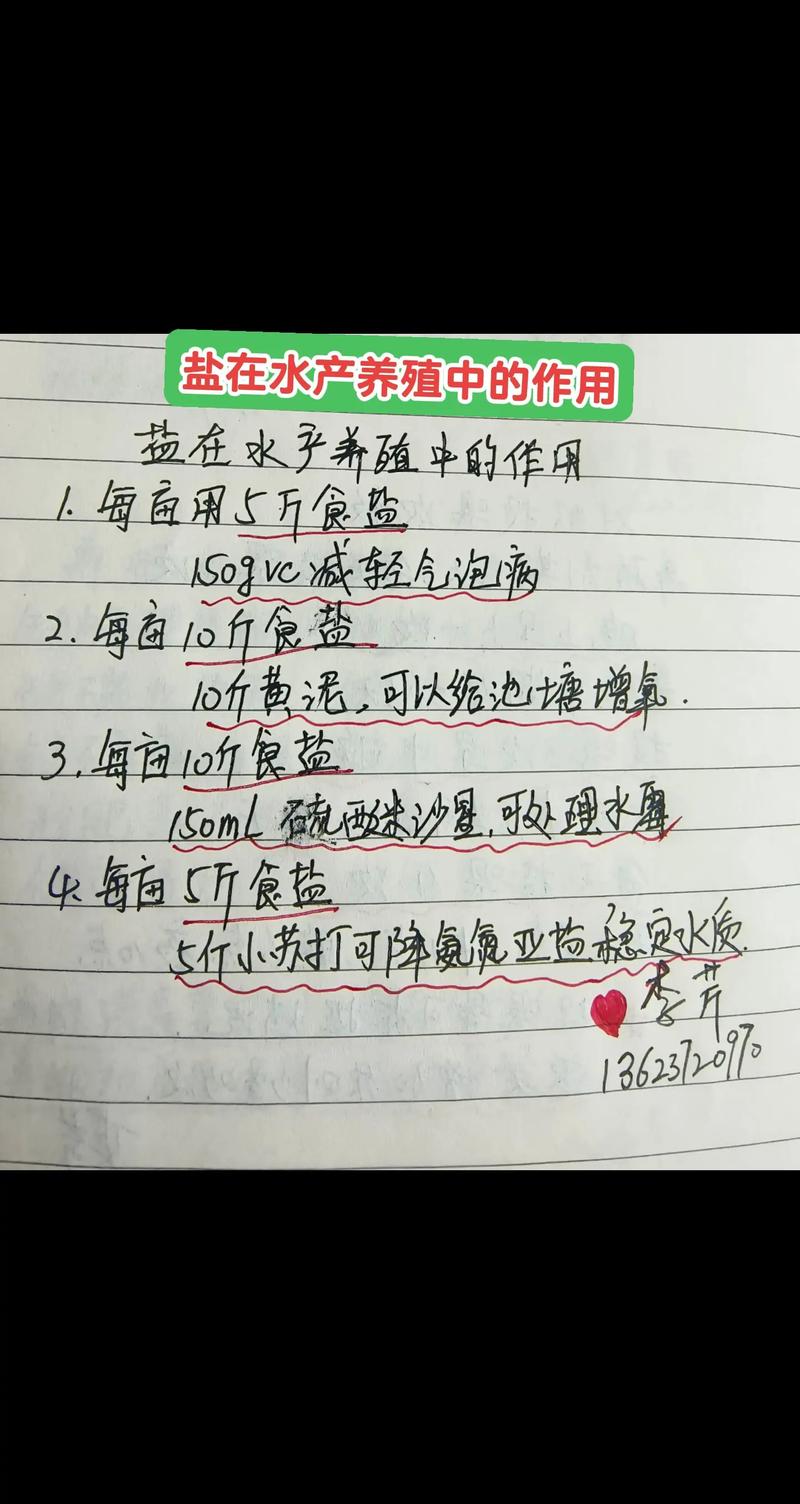 盐在水产养殖中的作用
盐在水产养殖中的作用
1. 每亩用5斤食盐
150gvc减轻气泡病
2. 每亩10斤食盐
10斤黄泥,可以给池塘增氧.
3. 每亩10斤食盐
150mL 硫醚沙星,可处理水霉
4. 每亩5斤食盐
5斤小苏打可降氨氮亚盐稳定水质.
李芹
13623720970